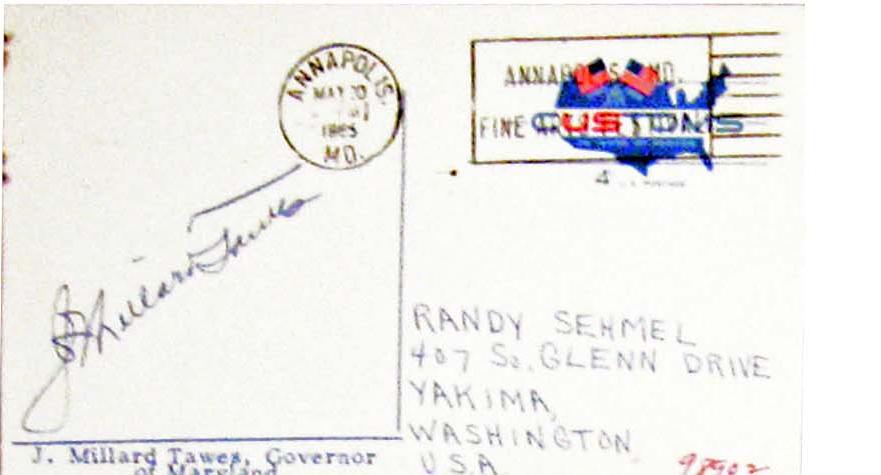 ANNAPOLIS.
MAY 20
1965
MD.
ANNAPOLIS, MD.
FINE
CUSTOMS
4 U.S. POSTAGE
J. Millard Tawes
J. Millard Tawes, Governor
of Maryland
RANDY SEHMEL
407 So. GLENN DRIVE
YAKIMA,
WASHINGTON
U.S.A
98902